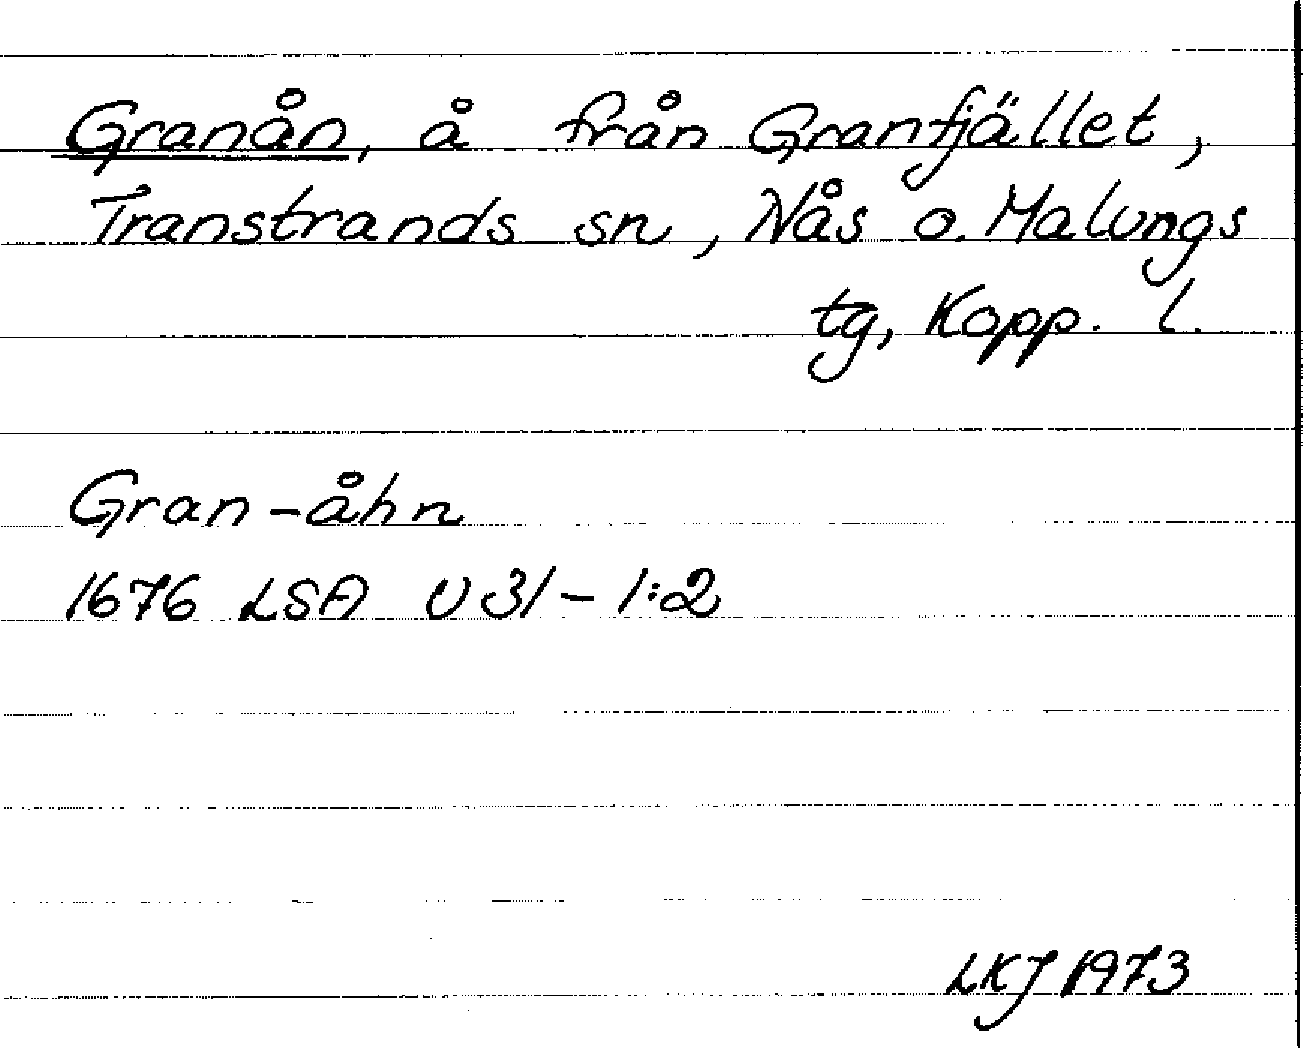 Granån, å från Granfjället,
Transtrands sn, Nås o. Malungs
tg, Kopp. l.
Gran-åhn
1676 LSA U31-1:2
LKJ 1973